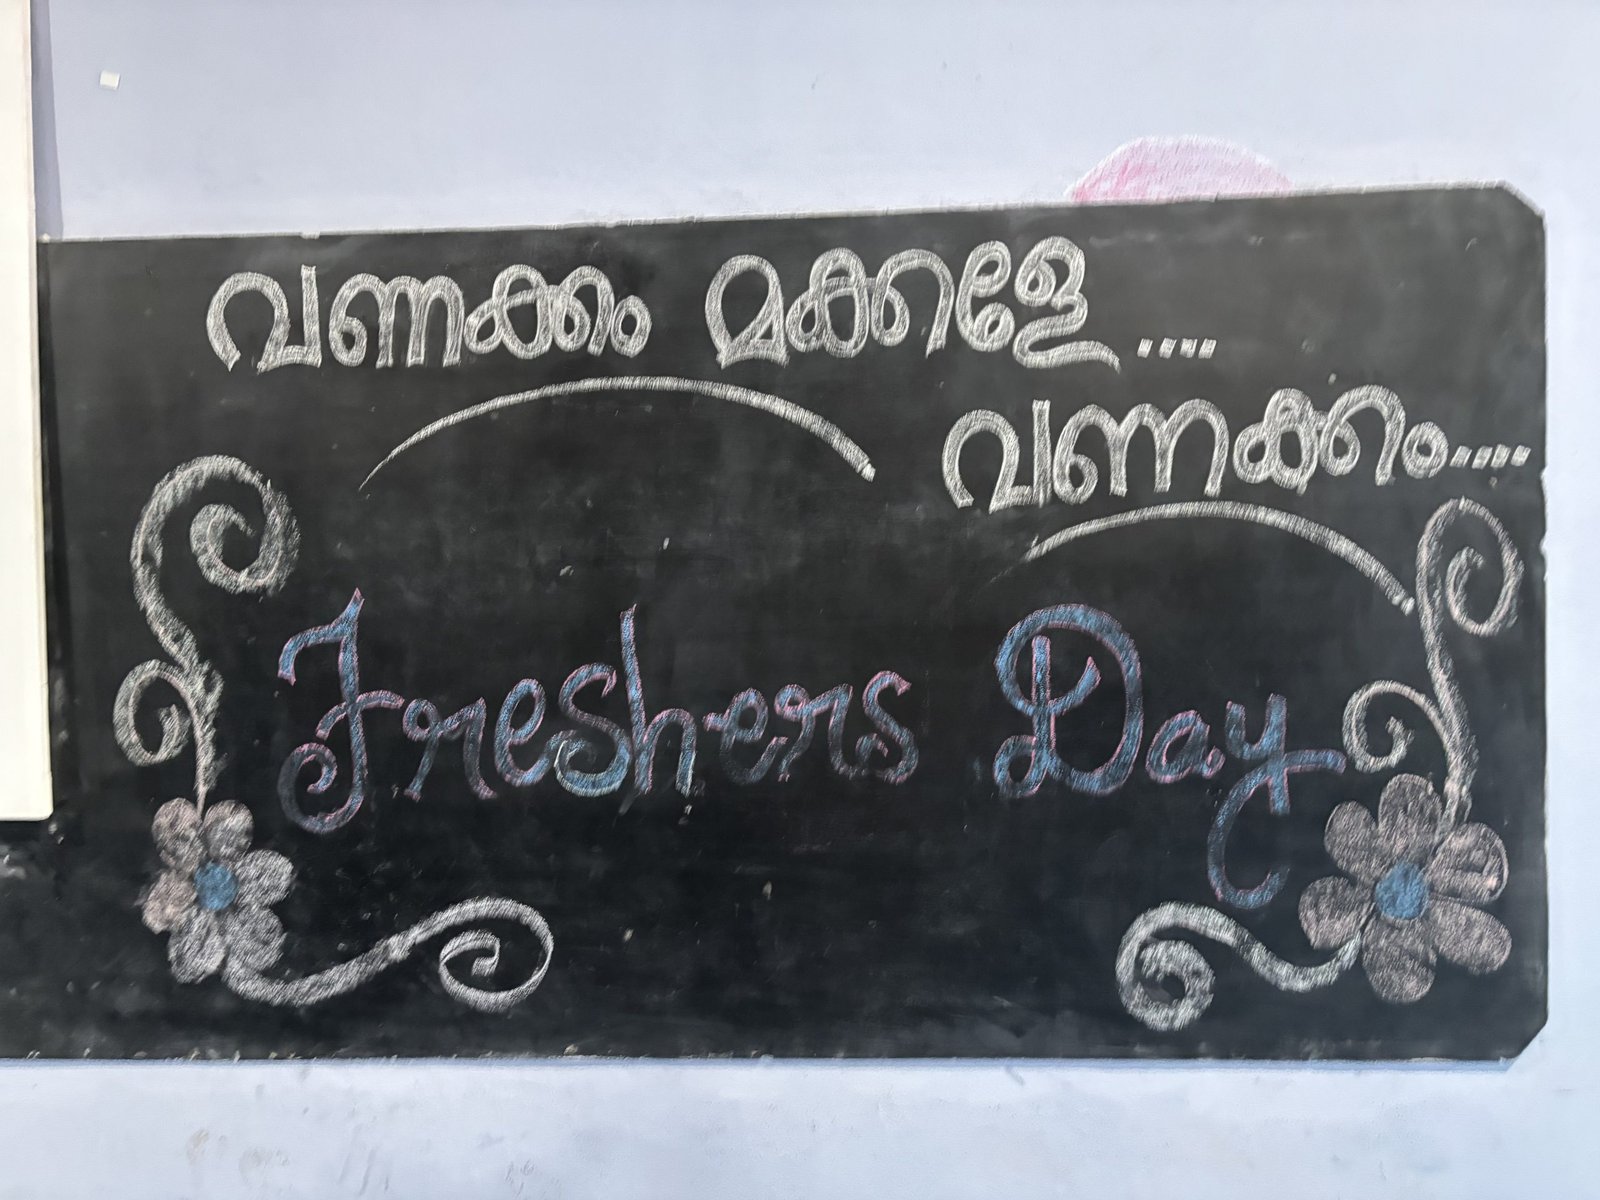 വണക്കം മക്കളേ ....
വണക്കം....
Freshers Day